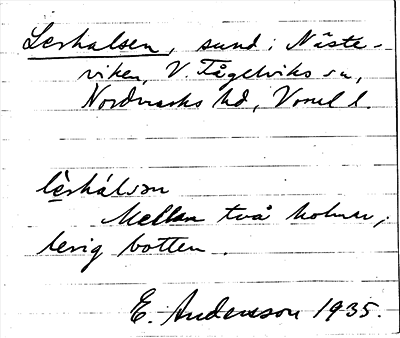 Lerhalsen, sund i Näste-
viken, V. Fågelviks sn,
Nordmarks hd, Vrml l.
lèrhálsən
Mellan två holmar,
lerig botten.
E. Andersson 1935.